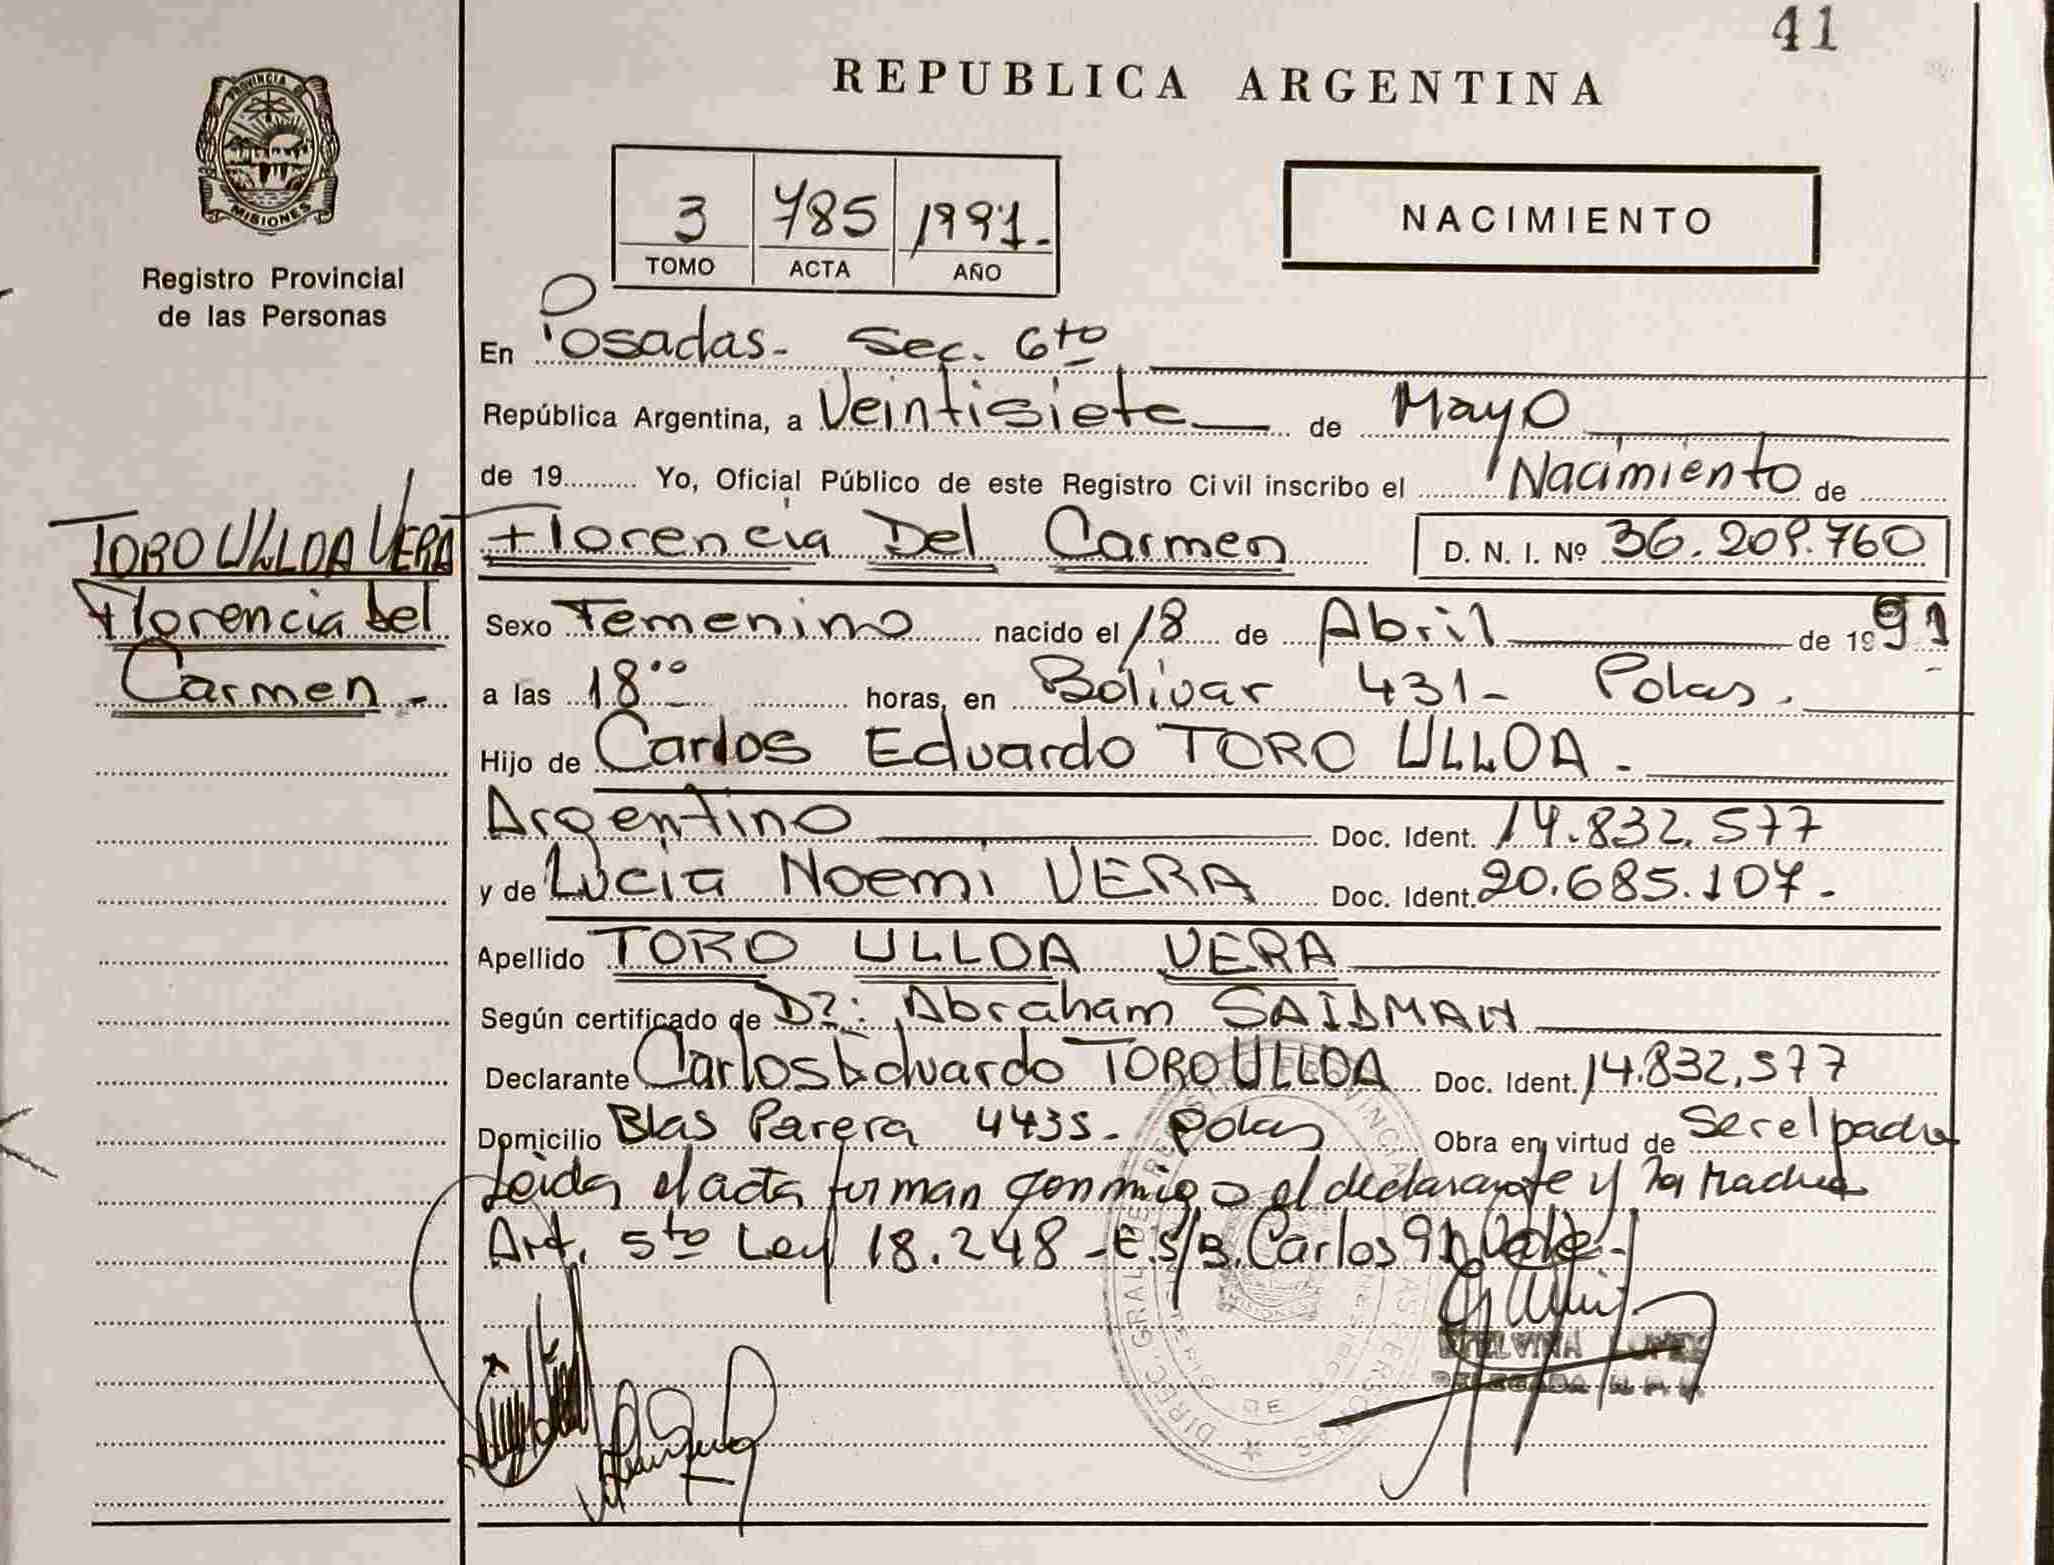 41
REPUBLICA ARGENTINA
PROVINCIA DE
MISIONES
Registro Provincial
de las Personas
3 785 1991.
TOMO ACTA AÑO
NACIMIENTO
En Posadas - Sec. 6to
República Argentina, a Veintisiete de Mayo
de 19 Yo, Oficial Público de este Registro Civil inscribo el Nacimiento de
TORO ULLOA VERA
Florencia Del
Carmen -
Florencia Del Carmen D. N. I. Nº 36.209.760
Sexo Femenino nacido el 18 de Abril de 1991
a las 18 00 horas, en Bolívar 431 - Pdas.
Hijo de Carlos Eduardo TORO ULLOA -
Argentino Doc. Ident. 14.832.577
y de Lucia Noemi VERA Doc. Ident. 20.685.107 -
Apellido TORO ULLOA VERA
Según certificado de Dr: Abraham SAIDMAN
Declarante Carlos Eduardo TORO ULLOA Doc. Ident. 14.832.577
Domicilio Blas Parera 4435 - Pdas Obra en virtud de Ser el padre
Leida el acta firman conmigo el declarante y la Madre
Art. 5to Ley 18.248 - E.S/B. Carlos 91 Vale -
DELEGADA R.P.P.